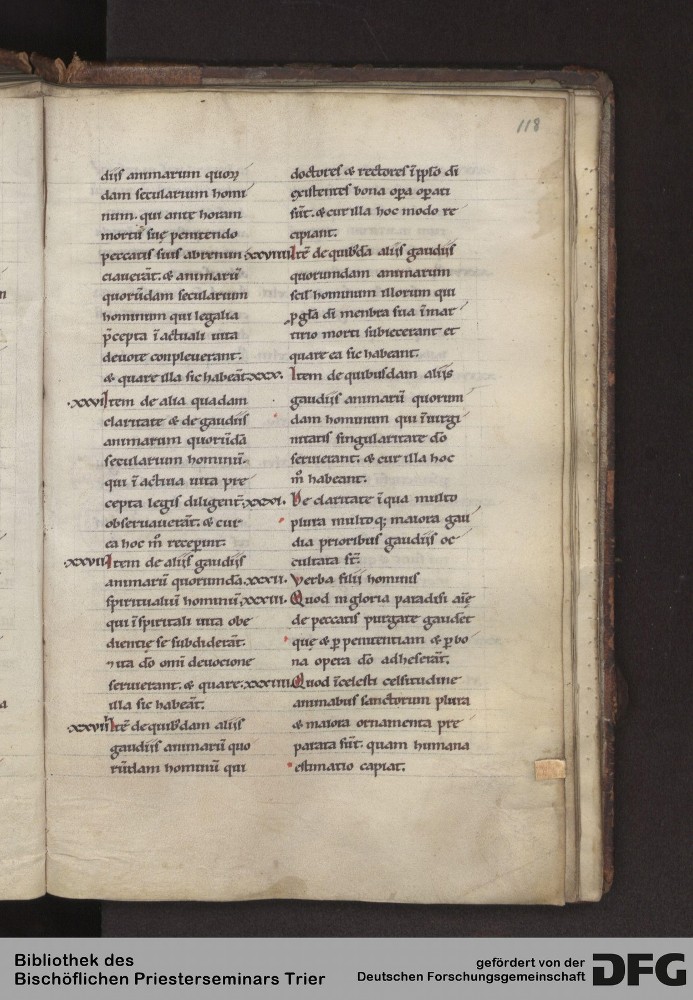 118
diis animarum quoꝝ
dam secularium homi
num. qui ante horam
mortis sue penitendo
peccatis suis abrenun
ciauerāt. & animarū
quorūdam secularium
hominum qui legalia
p̄cepta ī actuali uita
deuote conpleuerant.
& quare illa sic habeāt.
.xxvi. Item de alia quadam
claritate & de gaudiis
animarum quorūda
secularium hominū.
qui ī actiua uita pre
cepta legis diligent̄
obseruauerāt. & cur
ea hoc m̄ receperint.
.xxvii. Item de aliis gaudiis
animarū quorunda
spiritualiū hominū
qui ī spiritali uita obe
dientię se subdiderāt.
⁊ ita dō omī deuocione
seruierant. & quare
illa sic habeāt.
.xxviii. Itē de quibꝰdam aliis
gaudiis animarū quo
rūdam hominū qui
doctores & rectores ī ppło dī
existentes bona opa opati
sūt. & cur illa hoc modo re
cipiant.
.xxviiii. Itē de quibꝰda aliis gaudiis
quorumdam animarum
scil' hominum illorum qui
ꝓ gła dī menbra sua ī mar
tirio morti subiecerant et
quare ea sic habeant.
.xxx. Item de quibusdam aliis
gaudiis animarū quorum
dam hominum qui ī uirgi
nitatis singularitate dō
seruierant. & cur illa hoc
m̄ habeant.
.xxxi. De claritate ī qua multo
plura multoq; maiora gau
dia prioribus gaudiis oc
cultata st̄.
.xxxii. Verba filii hominis
.xxxiii. Quod in gloria paradisi aīę
de peccatis purgate gaudēt
quę & ꝑ penitentiam & ꝑ bo
na opera dō adheserāt.
.xxxiiii. Quod ī celesti celsitudine
animabus sanctorum plura
& maiora ornamenta pre
parata sūt. quam humana
estimatio capiat.
Bibliothek des
Bischöflichen Priesterseminars Trier
gefördert von der
Deutschen Forschungsgemeinschaft
DFG